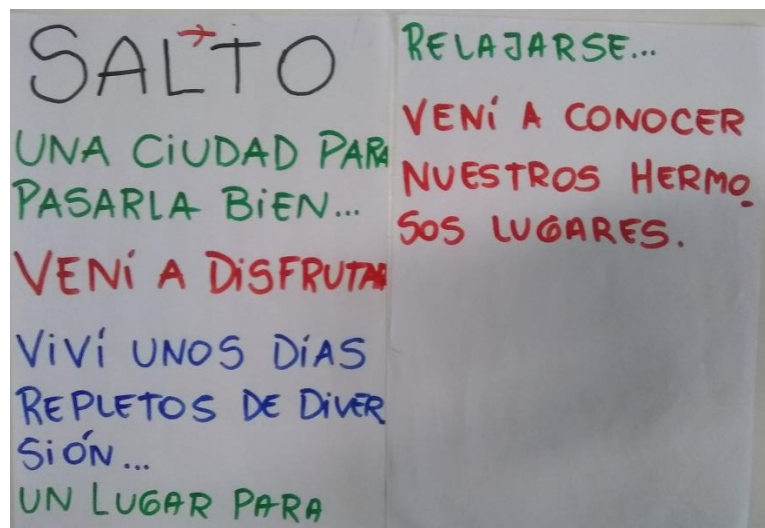 SALTO
UNA CiUDAD PARA
PASARLA BiEN...
VENÍ A DiSFRUTAR
ViVÍ UNOS DÍAS
REPLETOS DE DiVER
SiÓN...
UN LUGAR PARA
RELAJARSE...
VENÍ A CONOCER
NUESTROS HERMO
SOS LUGARES.